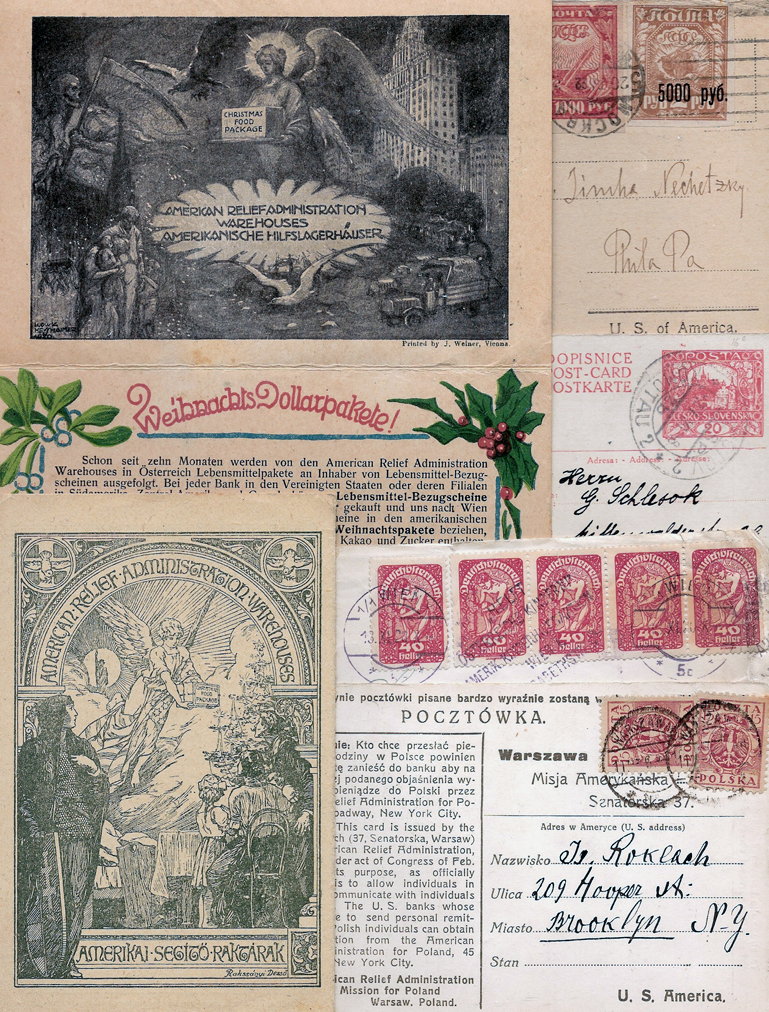 CHRISTMAS
FOOD
PACKAGE
AMERICAN RELIEF ADMINISTRATION
WAREHOUSES
AMERIKANISCHE HILFSLAGERHÄUSER
Printed by J. Weiner, Vienna.
Weihnachts Dollarpakete!
Schon seit zehn Monaten werden von den American Relief Administration
Warehouses in Österreich Lebensmittelpakete an Inhaber von Lebensmittel-Bezug-
scheinen ausgefolgt. Bei jeder Bank in den Vereinigten Staaten oder deren Filialen
Lebensmittel-Bezugscheine
gekauft und uns nach Wien
heine in den amerikanischen
Weihnachtspakete beziehen,
Kakao und Zucker enthalten
AMERICAN·RELIEF·ADMINISTRATION·WAREHOUSES
CHRISTMAS
FOOD
PACKAGE
AMERIKAI·SEGÍTŐ·RAKTÁRAK
ПОЧТА
1000 РУБ
5000 руб.
МОСКВА
Simha Nechetzky
Phila Pa
U. S. of America.
DOPISNICE
POST-CARD
POSTKARTE
POSTA
ČESKO-SLOVENSKÁ
20
Adresa: - Address: - Adresse:
Herrn
G. Schlesok
Deutschösterreich
40
heller
Deutschösterreich
40
heller
Deutschösterreich
40
heller
Deutschösterreich
40
heller
Deutschösterreich
40
heller
1/1 WIEN
WIEN
5c
ynie pocztówki pisane bardzo wyraźnie zostaną
POCZTÓWKA.
nie: Kto chce przesłać pie-
odziny w Polsce powinien
tę zanieść do banku aby na
ej podanego objaśnienia wy-
ieniądze do Polski przez
elief Administration for Po-
oadway, New York City.
This card is issued by the
ch (37, Senatorska, Warsaw)
rican Relief Administration,
der act of Congress of Feb.
ts purpose, as officially
is to allow individuals in
ommunicate with individuals
The U. S. banks whose
e to send personal remit-
olish individuals can obtain
tion from the American
inistration for Poland, 45
New York City.
ican Relief Administration
Mission for Poland
Warsaw, Poland.
WARSZAWA
POLSKA
Warszawa
Misja Amerykańska
Senatorska 37.
Adres w Ameryce (U. S. address)
Nazwisko Is. Roklach
Ulica 209 Hooper st.
Miasto Brooklyn N.Y.
Stan
U. S. America.